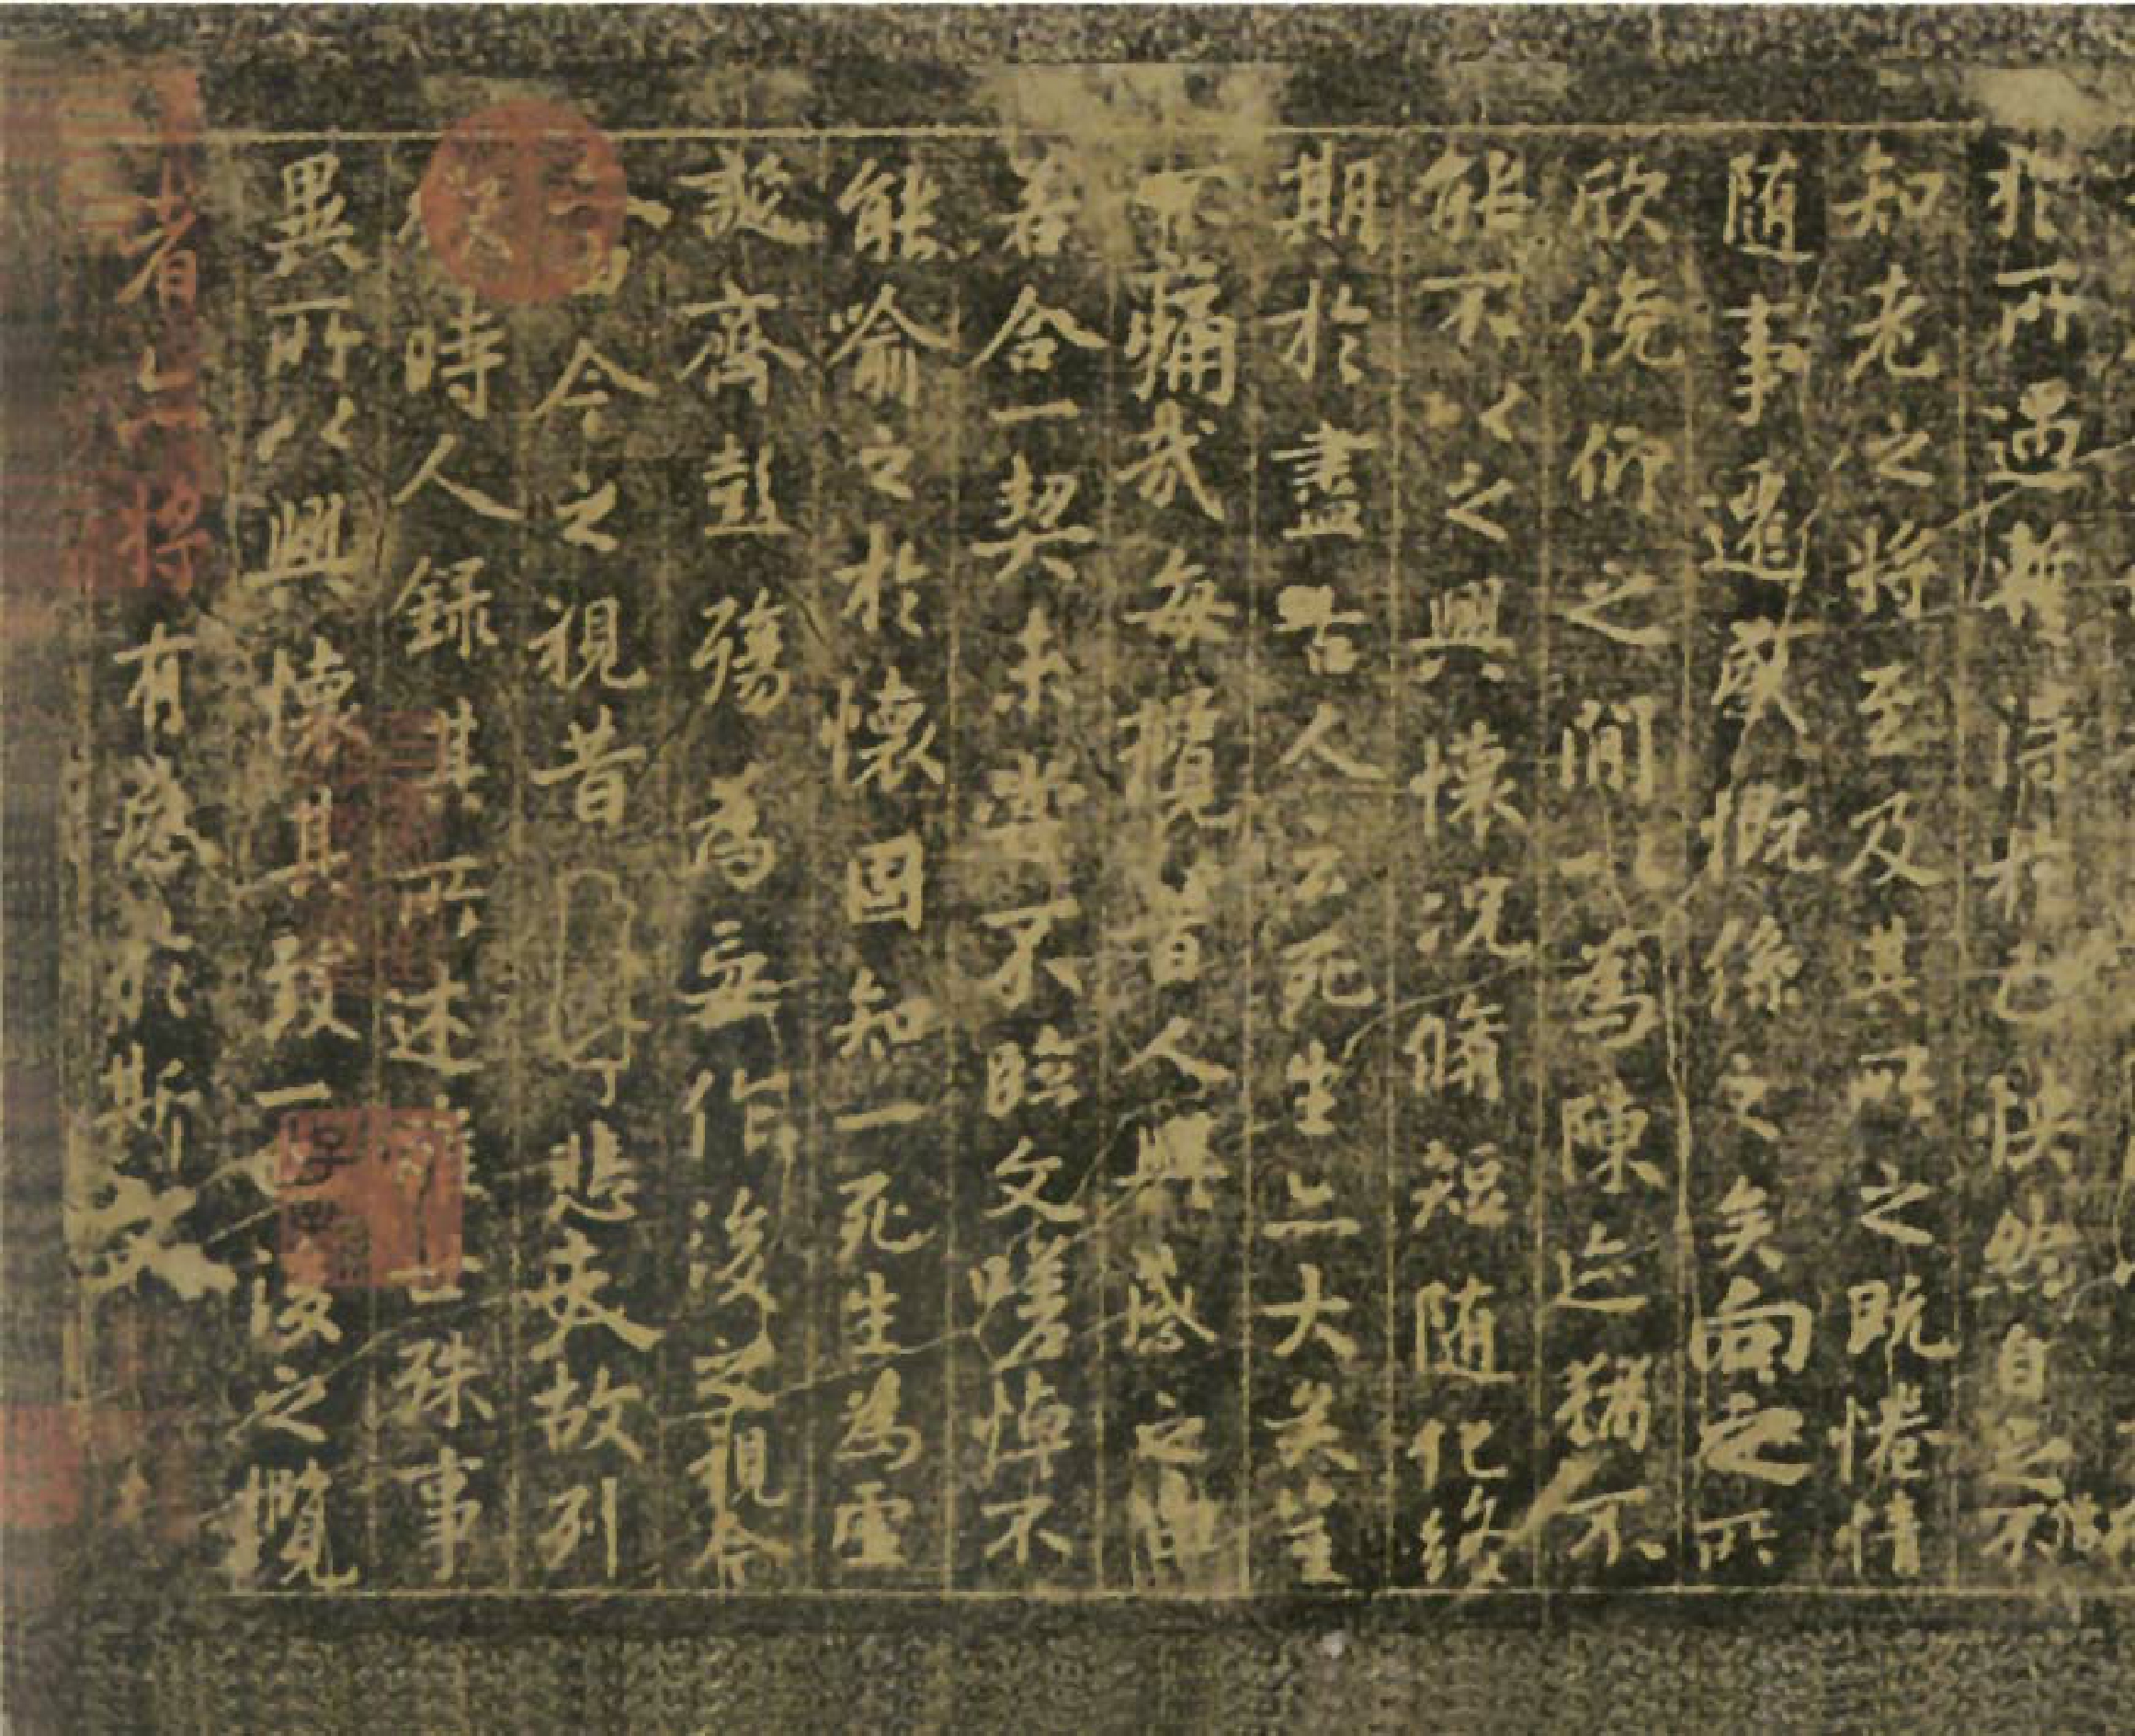 於所遇輒得於己怏然自足不
知老之將至及其所之既惓情
随事遷感慨係之矣向之所
欣俛仰之閒以為陳迹猶不
能不以之興懷況脩短随化終
期於盡古人云死生亦大矣豈
不痛哉每攬昔人興感之由
若合一契未嘗不臨文嗟悼不
能喻之於懷固知一死生為虛
誕齊彭殤為妄作後之視今
亦由今之視昔悲夫故列
敘時人錄其所述雖世殊事
異所以興懷其致一也後之攬
者亦將有感於斯文